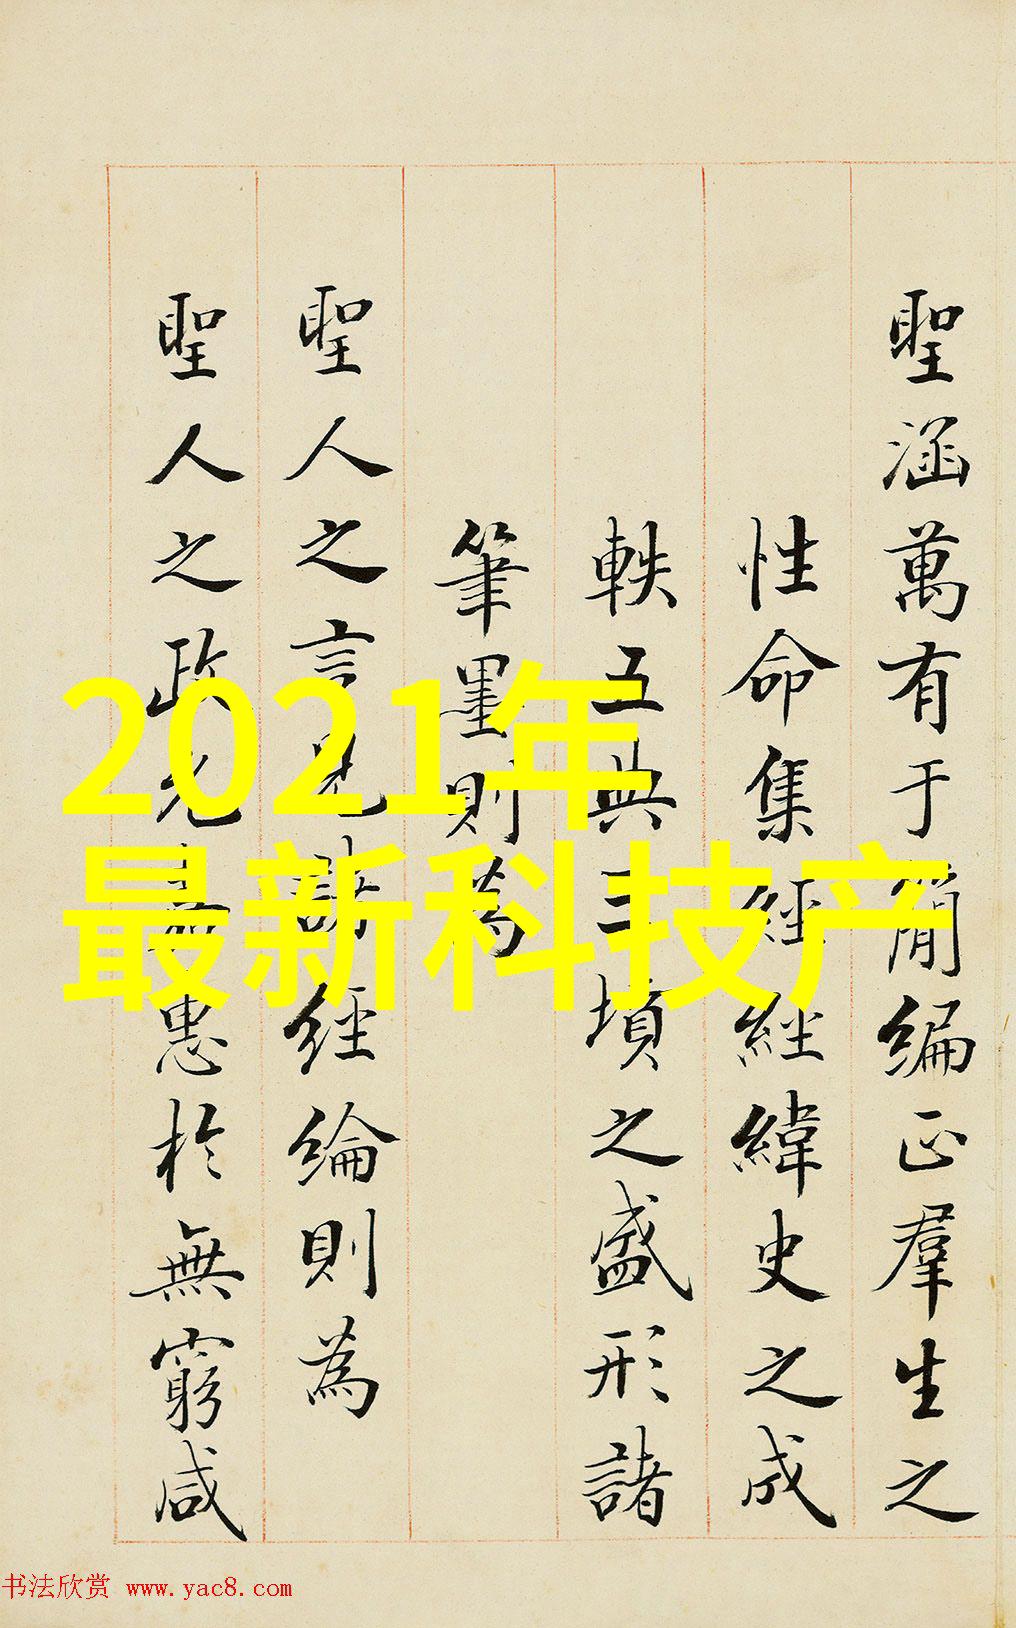 聖涵萬有于簡編正羣生之
性命集經經緯史之成
軼五典三墳之盛形諸
筆墨則為
聖人之言見諸經綸則為
聖人之政嘉惠於無窮咸
2021年
最新科技产
书法欣赏 www.yac8.com